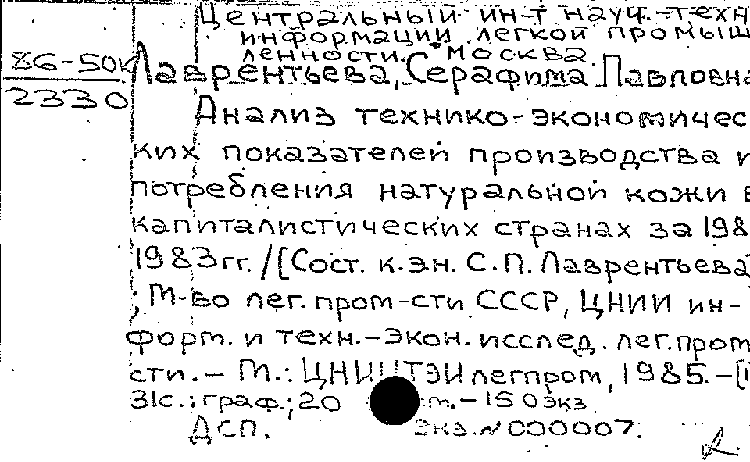 Центральный ин-т науч.-техн
информации легкой промыш
ленности. Москва.
86-50к
2330
Лаврентьева, Серафима Павловна
Анализ технико-экономичес
ких показателей производства и
потребления натуральной кожи в
капиталистических странах за 198
1983гг. /[Сост. к.э.н. С.П. Лаврентьева]
; М-во лег. пром-сти СССР, ЦНИИ ин-
форм. и техн.-экон. исслед. лег. пром
сти. - М.: ЦНИИТЭИлегпром, 1985. -
31с.: граф.; 20 - 150экз
Дсп. Экз. N 000007.